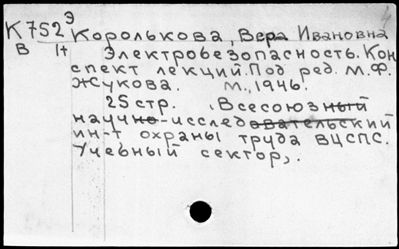 К752 Э Королькова, Вера Ивановна
В 1т Электробезопасность. Кон
спект лекций. Под ред. М.Ф.
Жукова. М., 1946.
25 стр. (Всесоюзный
научно-исследовательский
ин-т охраны труда ВЦСПС.
Учебный сектор).